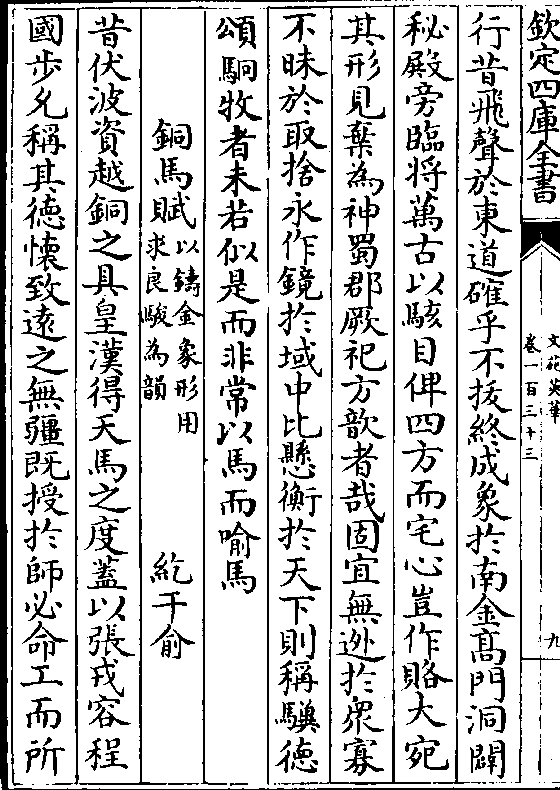 欽定四庫全書
文苑英華
卷一百三十三
九
行昔飛聲於東道確乎不拔終成象於南金髙門洞闢
秘殿旁臨將萬古以駭目俾四方而宅心豈作賂大宛
其形見棄為神蜀郡厥祀方歆者哉固宜無迯於衆寡
不昧於取捨永作鏡於域中比懸衡於天下則稱驥德
頌駉牧者未若似是而非常以馬而喻馬
銅馬賦以鑄金象形用求良駿為韻
紇干俞
昔伏波資越銅之具皇漢得天馬之度蓋以張戎容程
國步允稱其德懷致遠之無疆既授於師必命工而所